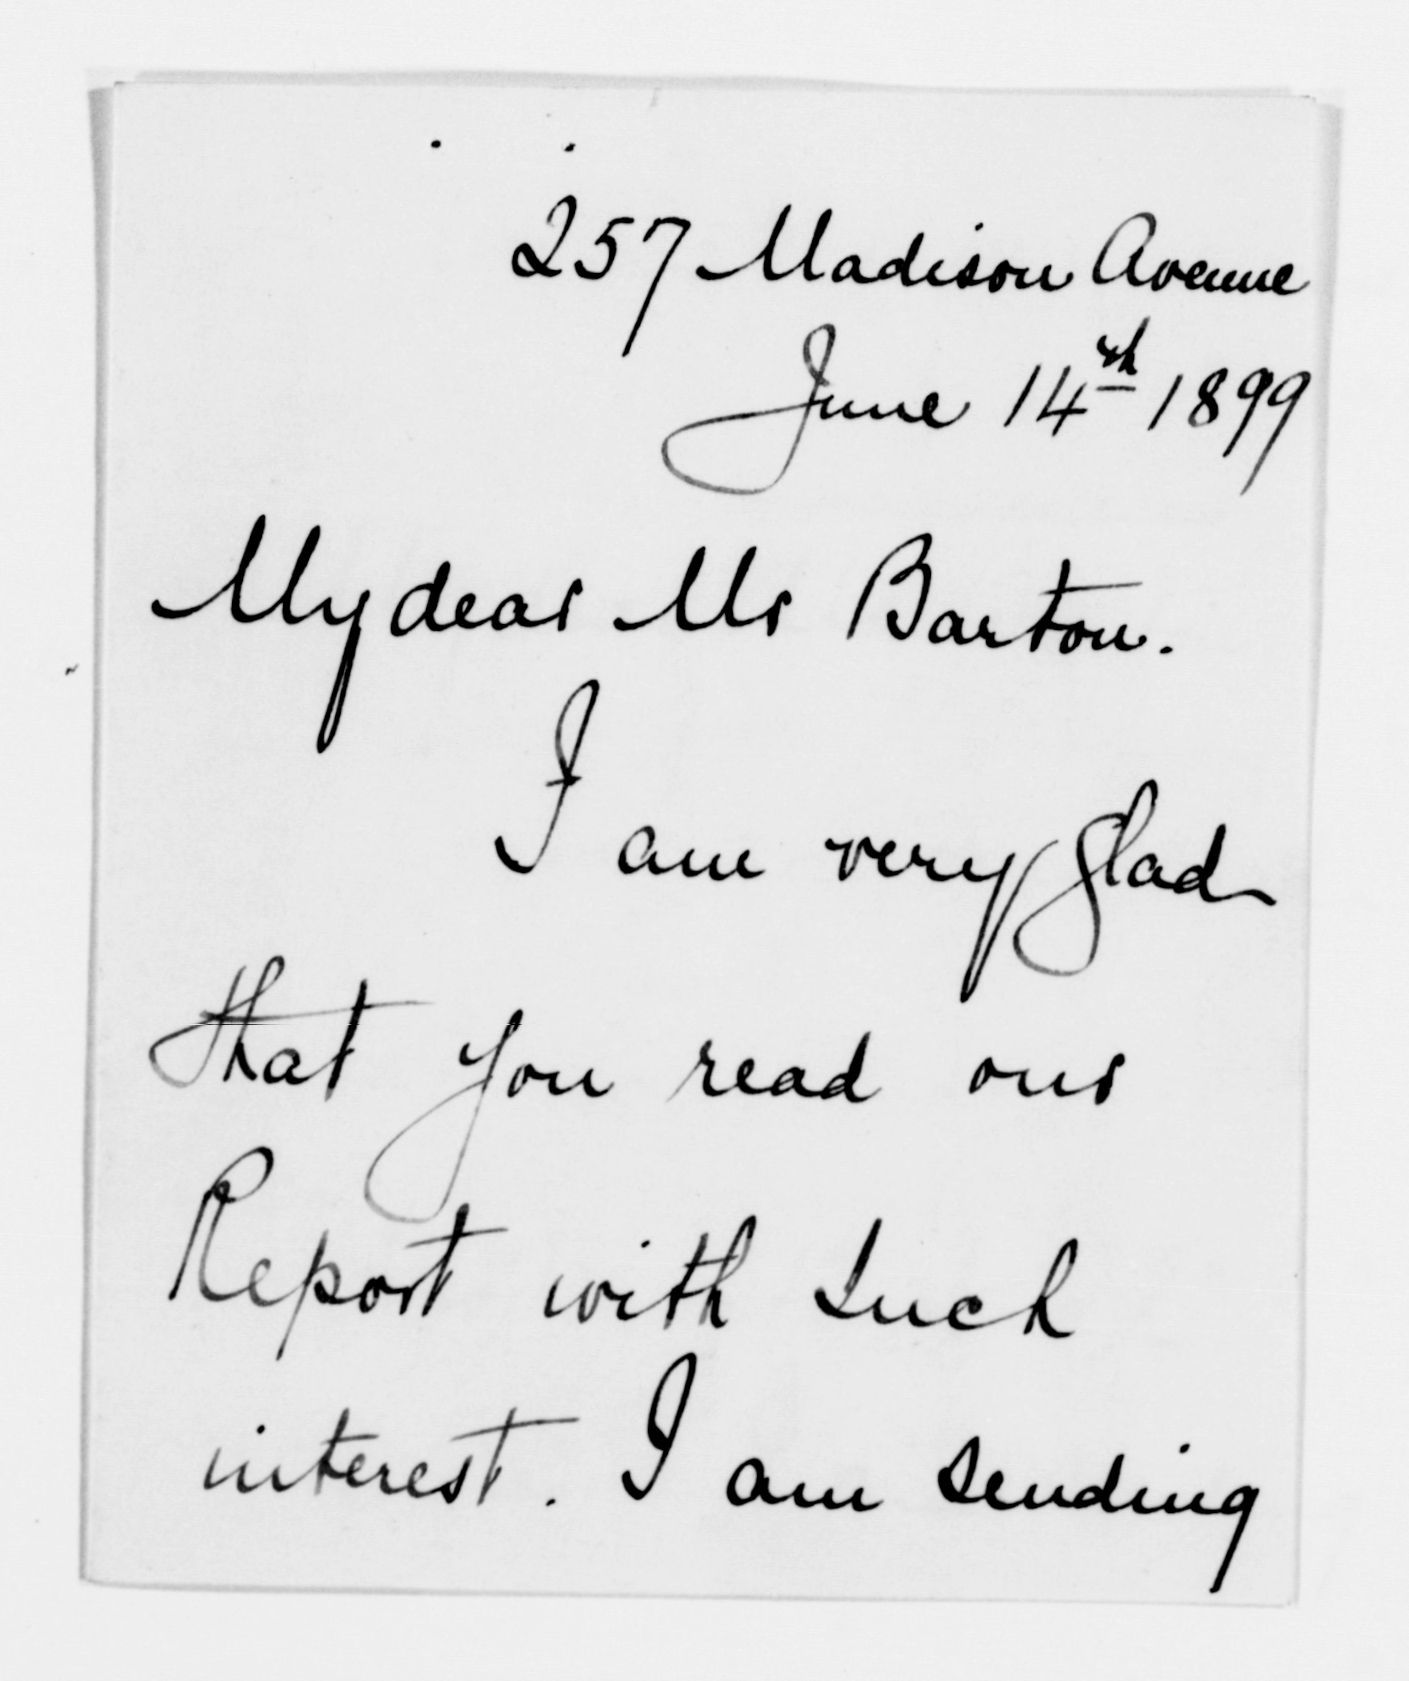 257 Madison Avenue
June 14th 1899
My dear Mr Barton.
I am very glad
that you read our
Report with such
interest. I am sending